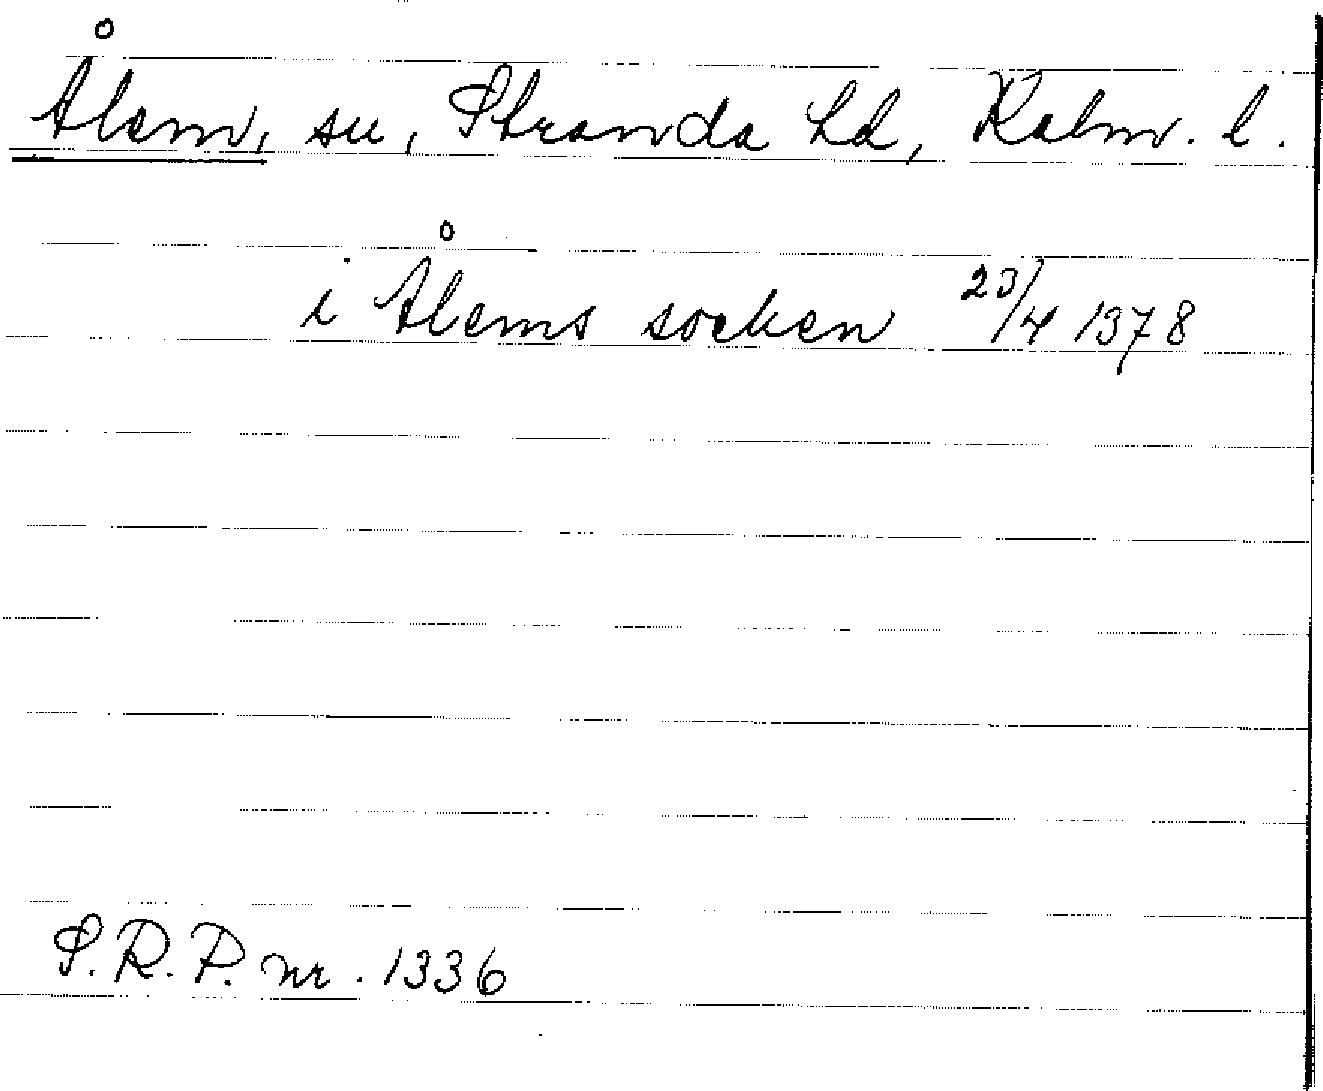 Ålem, sn, Stranda hd, Kalm. l.
i Ålems socken 23/4 1378
S.R.P. nr. 1336